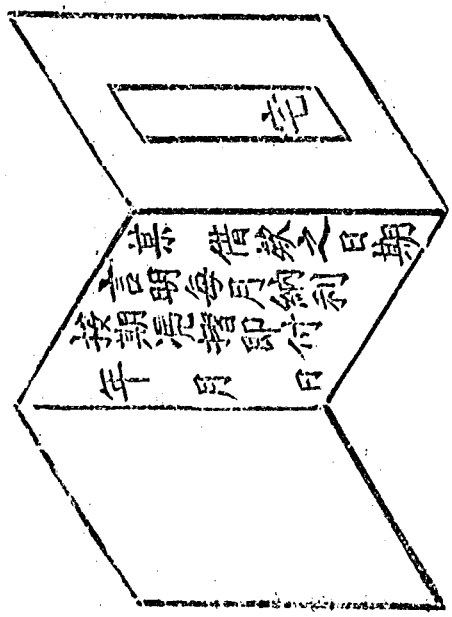 宅
借欵之日期
言明每月納利
按期憑摺即付
年 月 日